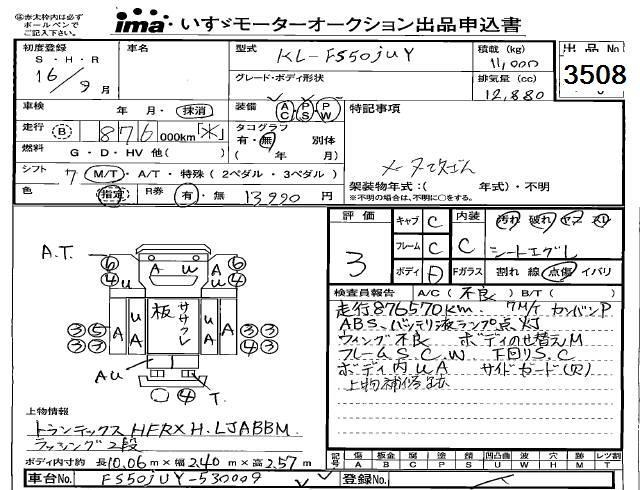 ㊟赤太枠内は必ず
ボールペンで
ご記入下さい。
ima いすゞモーターオークション出品申込書
初度登録 車名 型式 KL-FS50JUY 積載 (kg) 11,000 出品No 3508
S・H・R 16/9月 グレード・ボディ形状 排気量 (cc) 12,880
車検 年 月・抹消 装備 AC・PS・PW 特記事項
走行 B 876 000km「※」 タコグラフ 有・無 別体
燃料 G・D・HV 他( ) ( 年 月)
シフト 7 M/T・A/T・特殊(2ペダル・3ペダル)
架装物年式:( 年式)・不明
色 指定 R券 有・無 13,990 円 ※不明の場合は、不明に○をする。
評価 3 キャブ C 内装 C 汚れ 破れ ヤケ スリ
フレーム C シートエグレ
ボディ D Fガラス 割れ 線 点傷 イバリ
検査員報告 A/C(不良) B/T( )
走行876570km 7M/T カンバンP
ABS、バッテリ液ランプ点灯
ウィング不良 ボディのせ替えM
フレームS.C.W 下回りS.C
ボディ内UA サイドガード(穴)
上物補修跡
A.T.
⑥ A U ⑥
④ U U ④
③⑤ A A 板 ササクレ U A ③③
③③ ②③
AU ④ T.
上物情報
トランテックス HFRXH.LJABBM.
ラッシング2段
ボディ内寸約 長10.06m×幅2.40m×高2.57m
記号 傷 板金 腐 塗 錆 凹凸曲 波 穴 跡 要交換 レツ割
A B C P S U W H M T R
車台No. FS50JUY-530009 登録No.